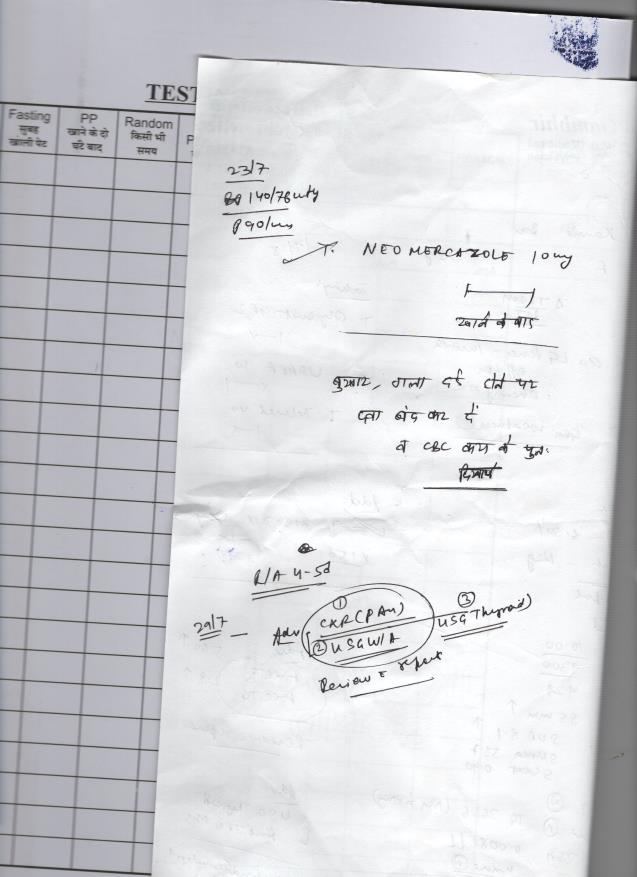 TEST
Fasting
सुबह
खाली पेट
PP
खाने के दो
घंटे बाद
Random
किसी भी
समय
P
23/7
BP 140/78
P 90/
T. NEOMERCAZOLE 10 mg
खाने के बाद
बुखार, गला दर्द होने पर
दवा बंद कर दें
व CBC करा के पुनः
दिखायें
R/A 4-5d
29/7 — Adv
① CXR (PAV) ③ USG Thyroid)
② USG W/A
Review c report